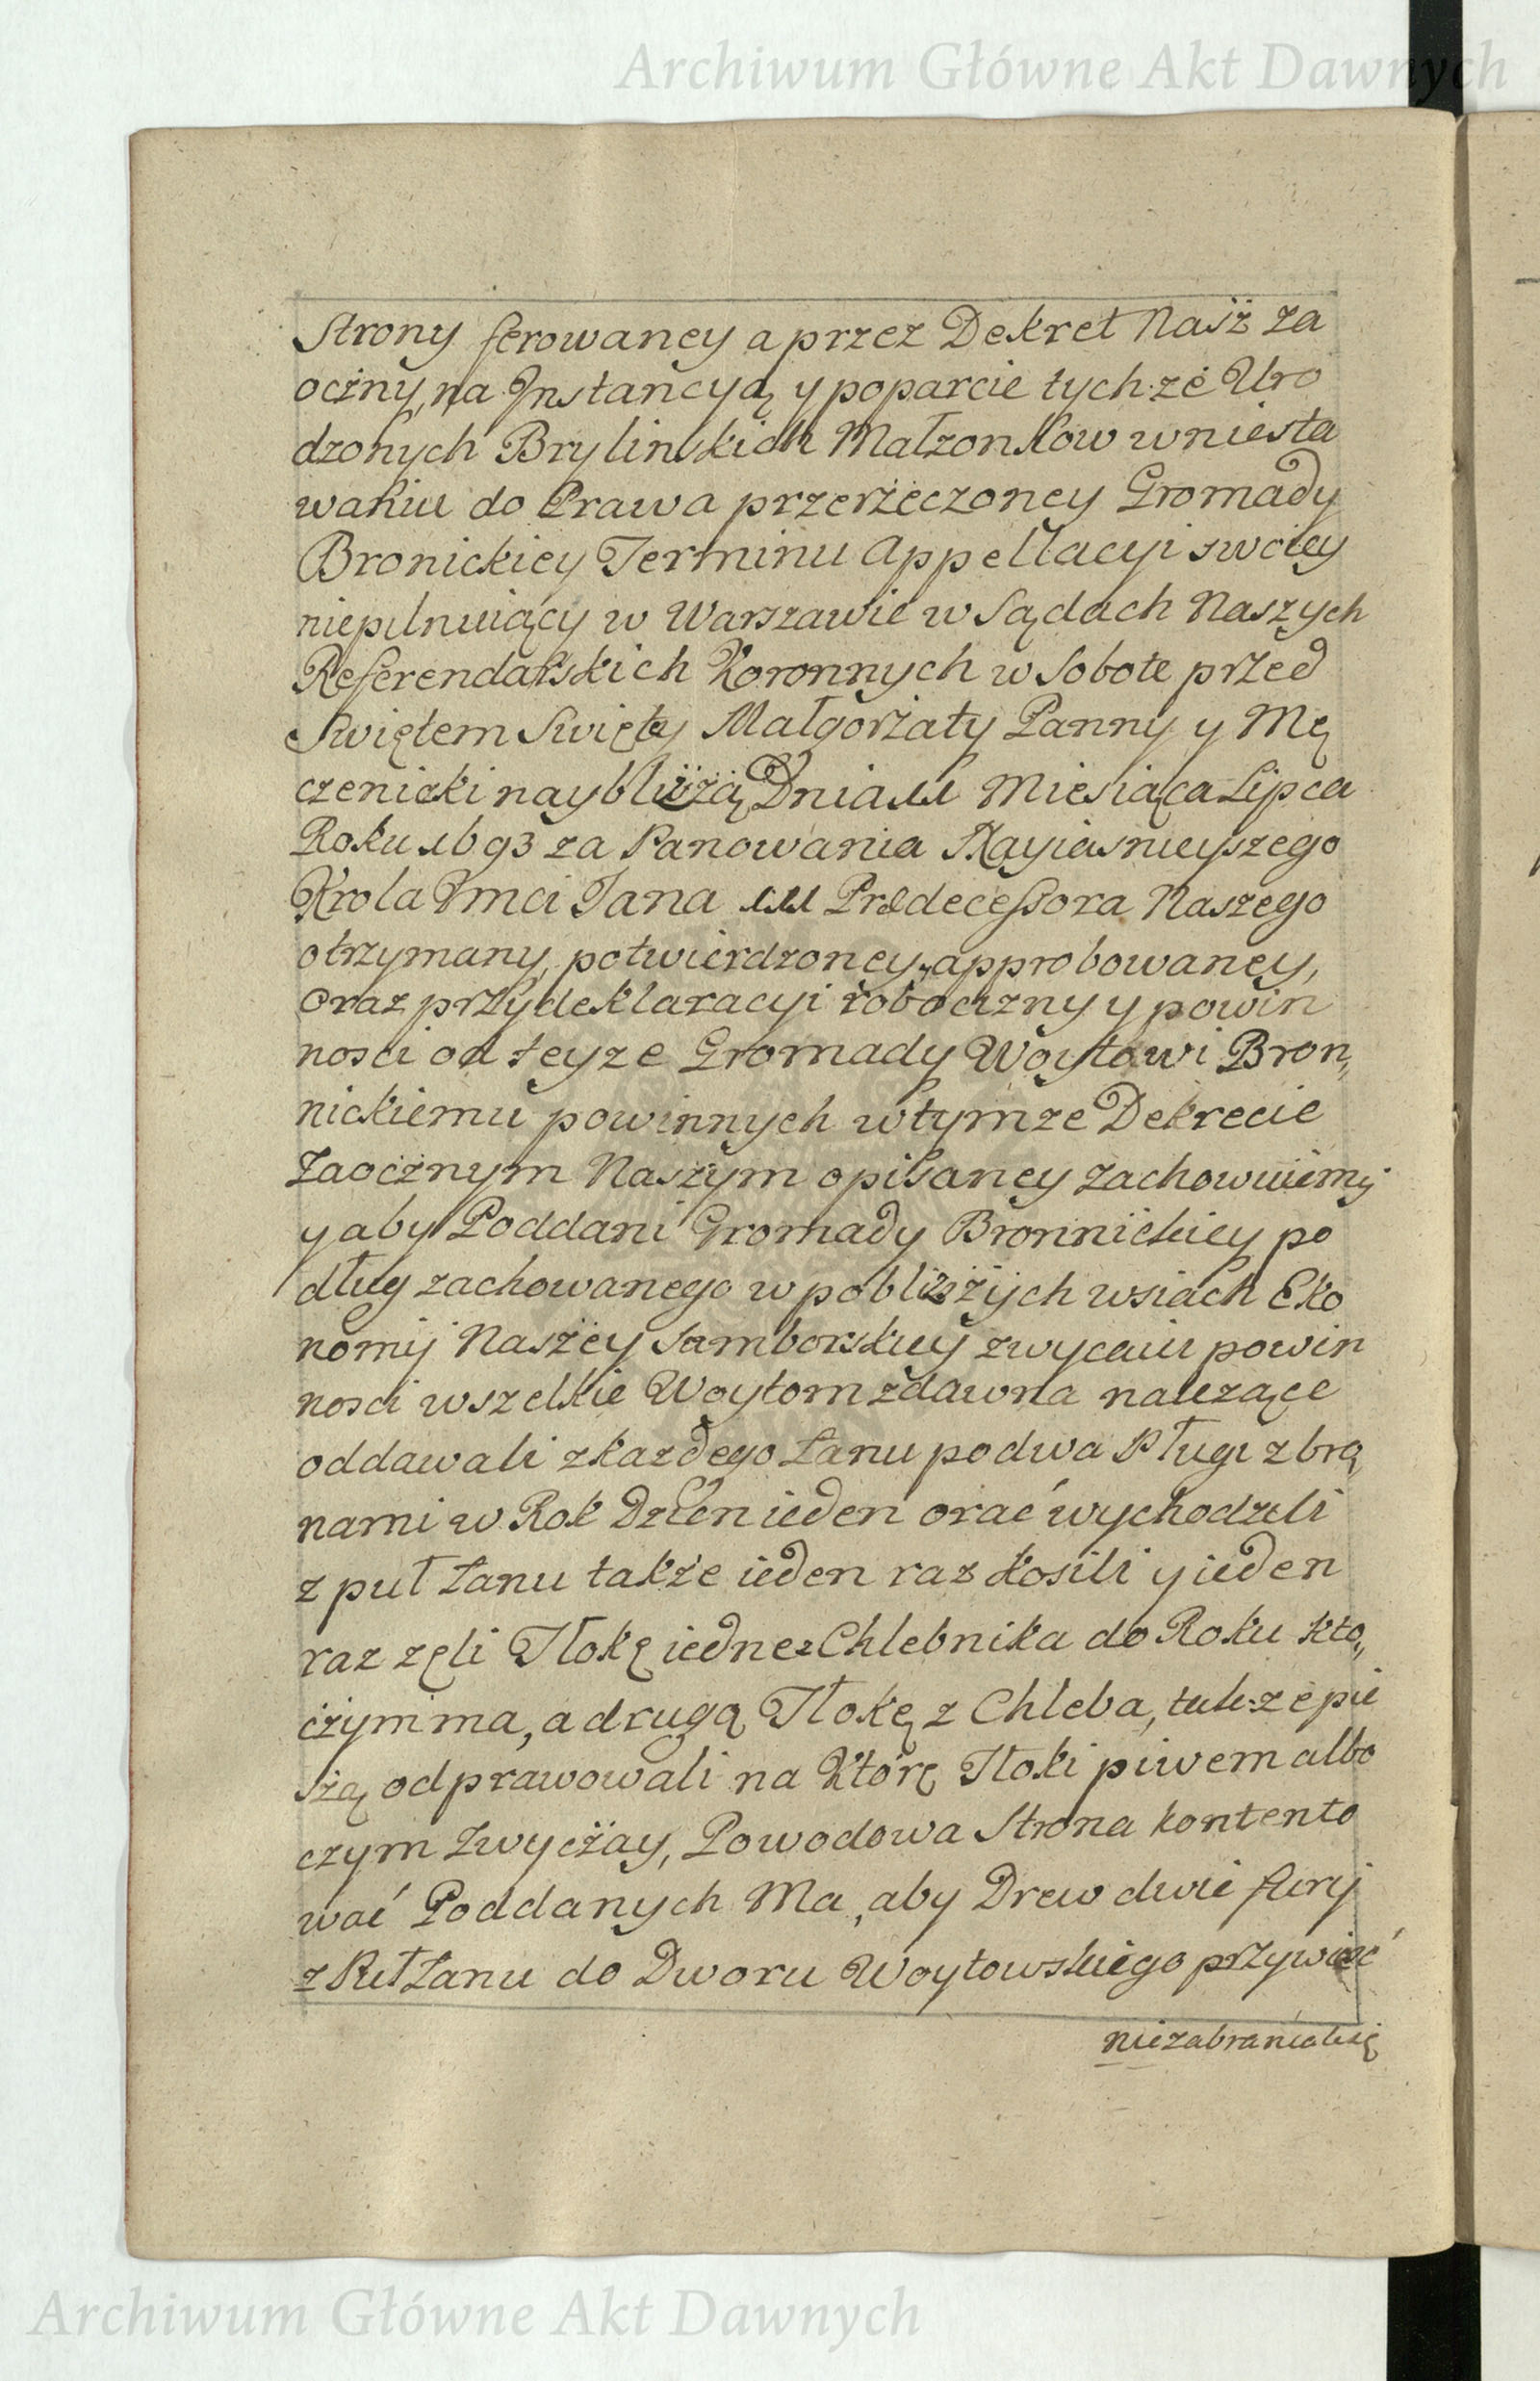 Archiwum Główne Akt Dawnych
Strony ferowaney a przez Dekret Nasż za
oczny, na Instancyą y poparcie tych-że Uro
dzonych Brylinskich Małzonkow w niesta
waniu do Prawa przerzeczoney Gromady
Bronickiey Terminu Appellacyi swoiey
niepilnuiący w Warszawie w Sądach Naszych
Referendarskich Koronnych w Sobote przed
Swiętem Swięty Małgorżaty Panny y Mę
czenicki naybliższą Dnia 11 Miesiąca Lipca
Roku 1693 za Panowania Nayiasnieyszego
Krola Jmci Jana III Prædecessora Naszego
otrzymany, potwierdzoney, approbowaney,
oraz przy deklaracyi robocizny y powin
nosci od teyze Gromady Woytowi Bron„
nickiemu powinnych w tymze Dekrecie
Zaocznym Naszym opisaney zachowuiemy
y aby Poddani Gromady Bronnickiey po
dług zachowanego w pobliższych wsiach Eko
nomij Naszey Samborskiey zwyczaiu powin
nosci wszelkie Woytom zdawna należące
oddawali z kazdego Łanu po dwa Pługi z bro
nami w Rok Dzien ieden orać wychodzili
z puł Łanu także ieden raz kosili y ieden
raz zęli Tłokę iednę z Chlebnika do Roku kto„
czym ma, a drugą Tłokę z Chleba, tuk-ze pie
szą odprawowali na Którę Tłoki piwem albo
czym zwyczay, Powodowa Strona kontento
wać Poddanych Ma, aby Drew dwie fury
z Puł Łanu do Dworu Woytowskiego przywieść
niezabraniali się
Archiwum Główne Akt Dawnych